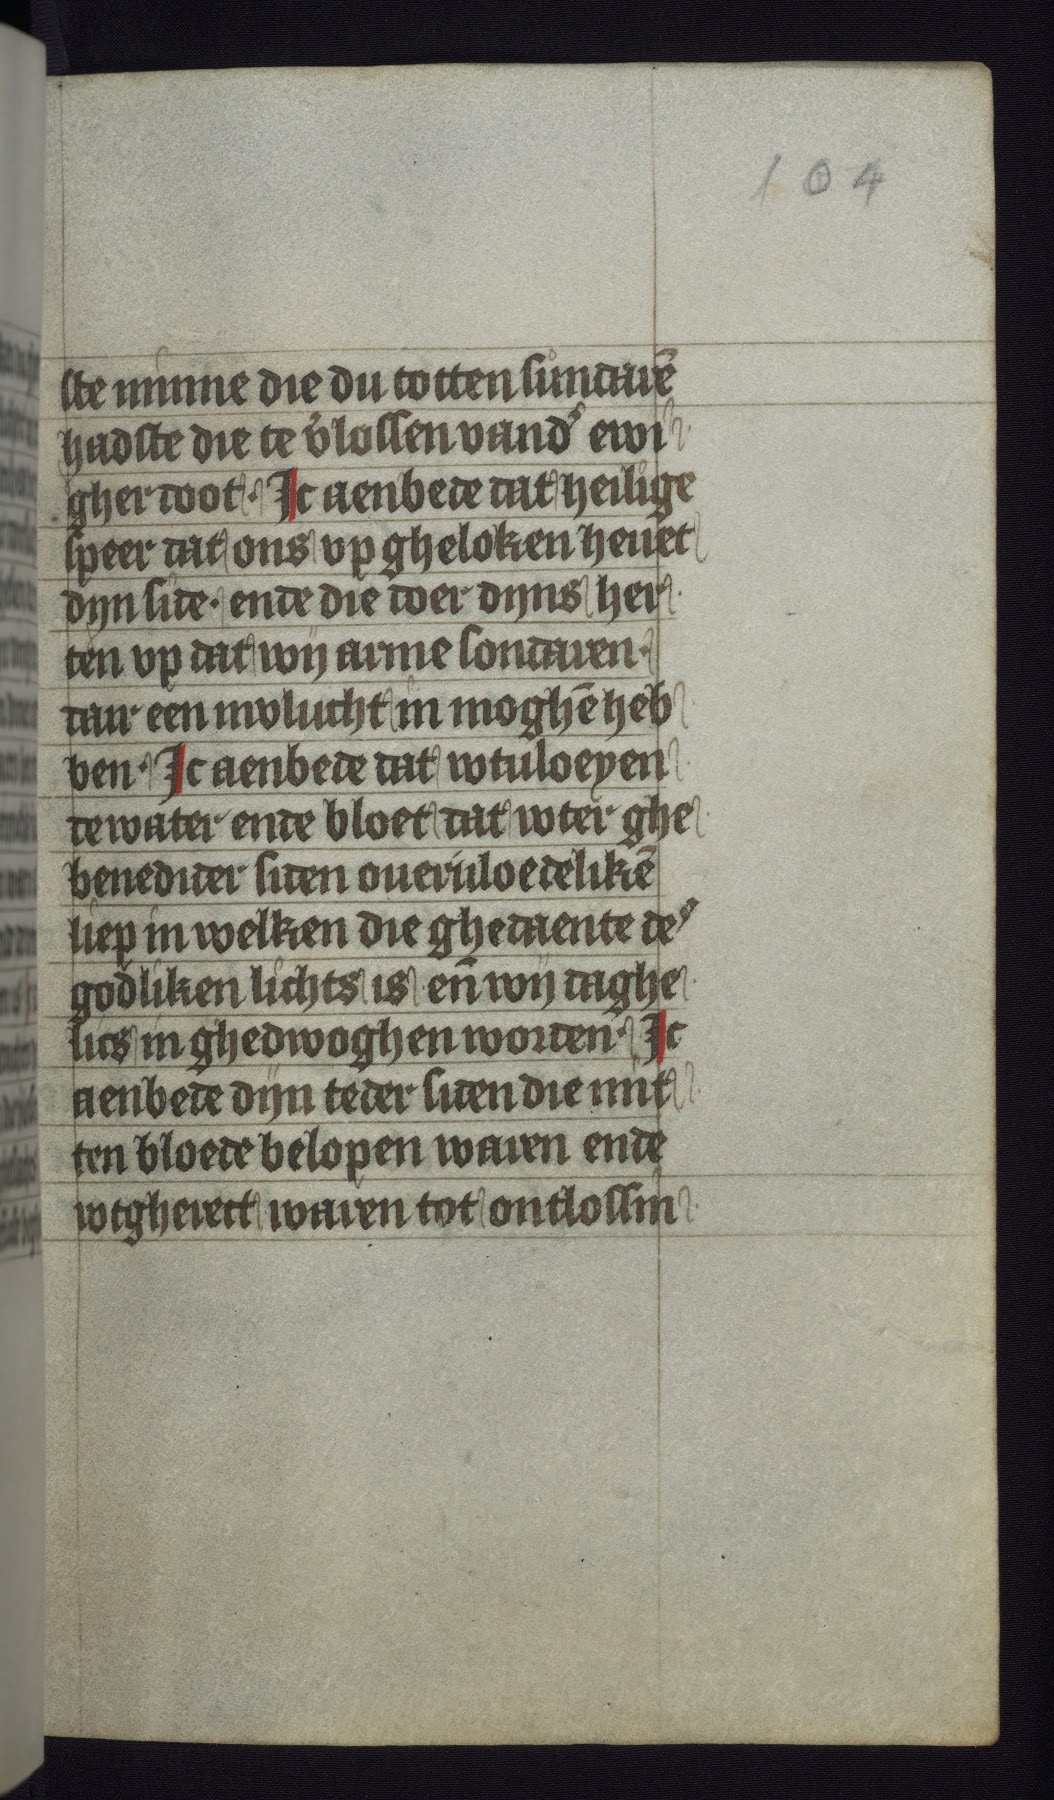 104
ste minne die du totten sundarē
hadste die te v̉lossen vand̉ ewi
gher doot. Ic aenbede dat heilige
speer dat ons vp gheloken heuet
dijn side. ende die doer dijns her
ten vp dat wij arme sondaren.
dair een invlucht in moghē heb
ben. Ic aenbede dat wtuloeyen
de water ende bloet dat wter ghe
benediter siden oueruloedelikē
liep in welken die ghedaente des
godliken lichts is en̄ wij daghe
lics in ghedwoghen worden. Ic
aenbede dijn teder siden die mit
ten bloede belopen waren ende
wtgherect waren tot ontlossin